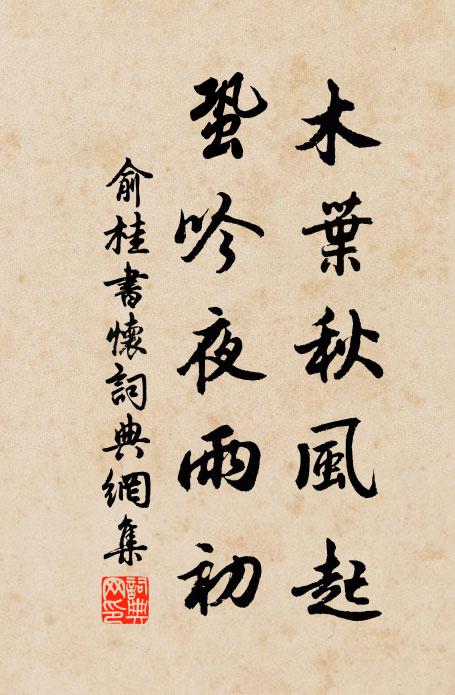 木葉秋風起
蛩吟夜雨初
俞桂書懷詞典網集
詞典網印